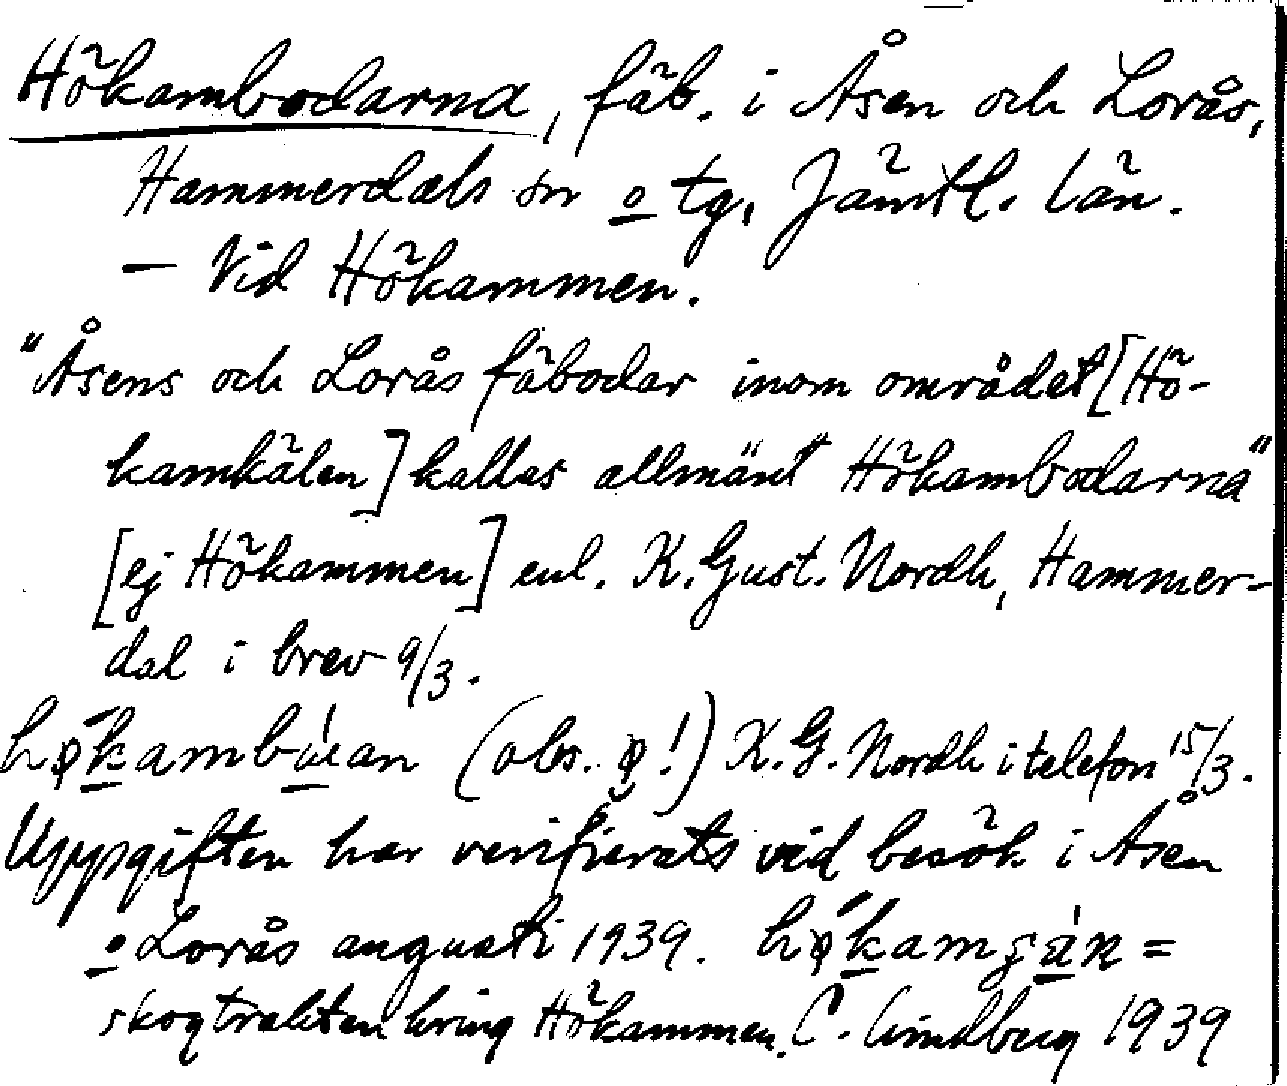 Hökambodarna, fäb. i Åsen och Lorås,
Hammerdals sn o tg, Jämtl. län.
— Vid Hökammen.
"Åsens och Lorås fäbodar inom området [Hö-
kamkälen] kallas allmänt "Hökambodarna"
[ej Hökammen] enl. K. Gust. Nordh, Hammer-
dal i brev 9/3.
(obs. ǫ!) K. G. Nordh i telefon 15/3.
Uppgiften har verifierats vid besök i Åsen
o Lorås augusti 1939. =
skogtrakten kring Hökammen. C. Lindberg 1939